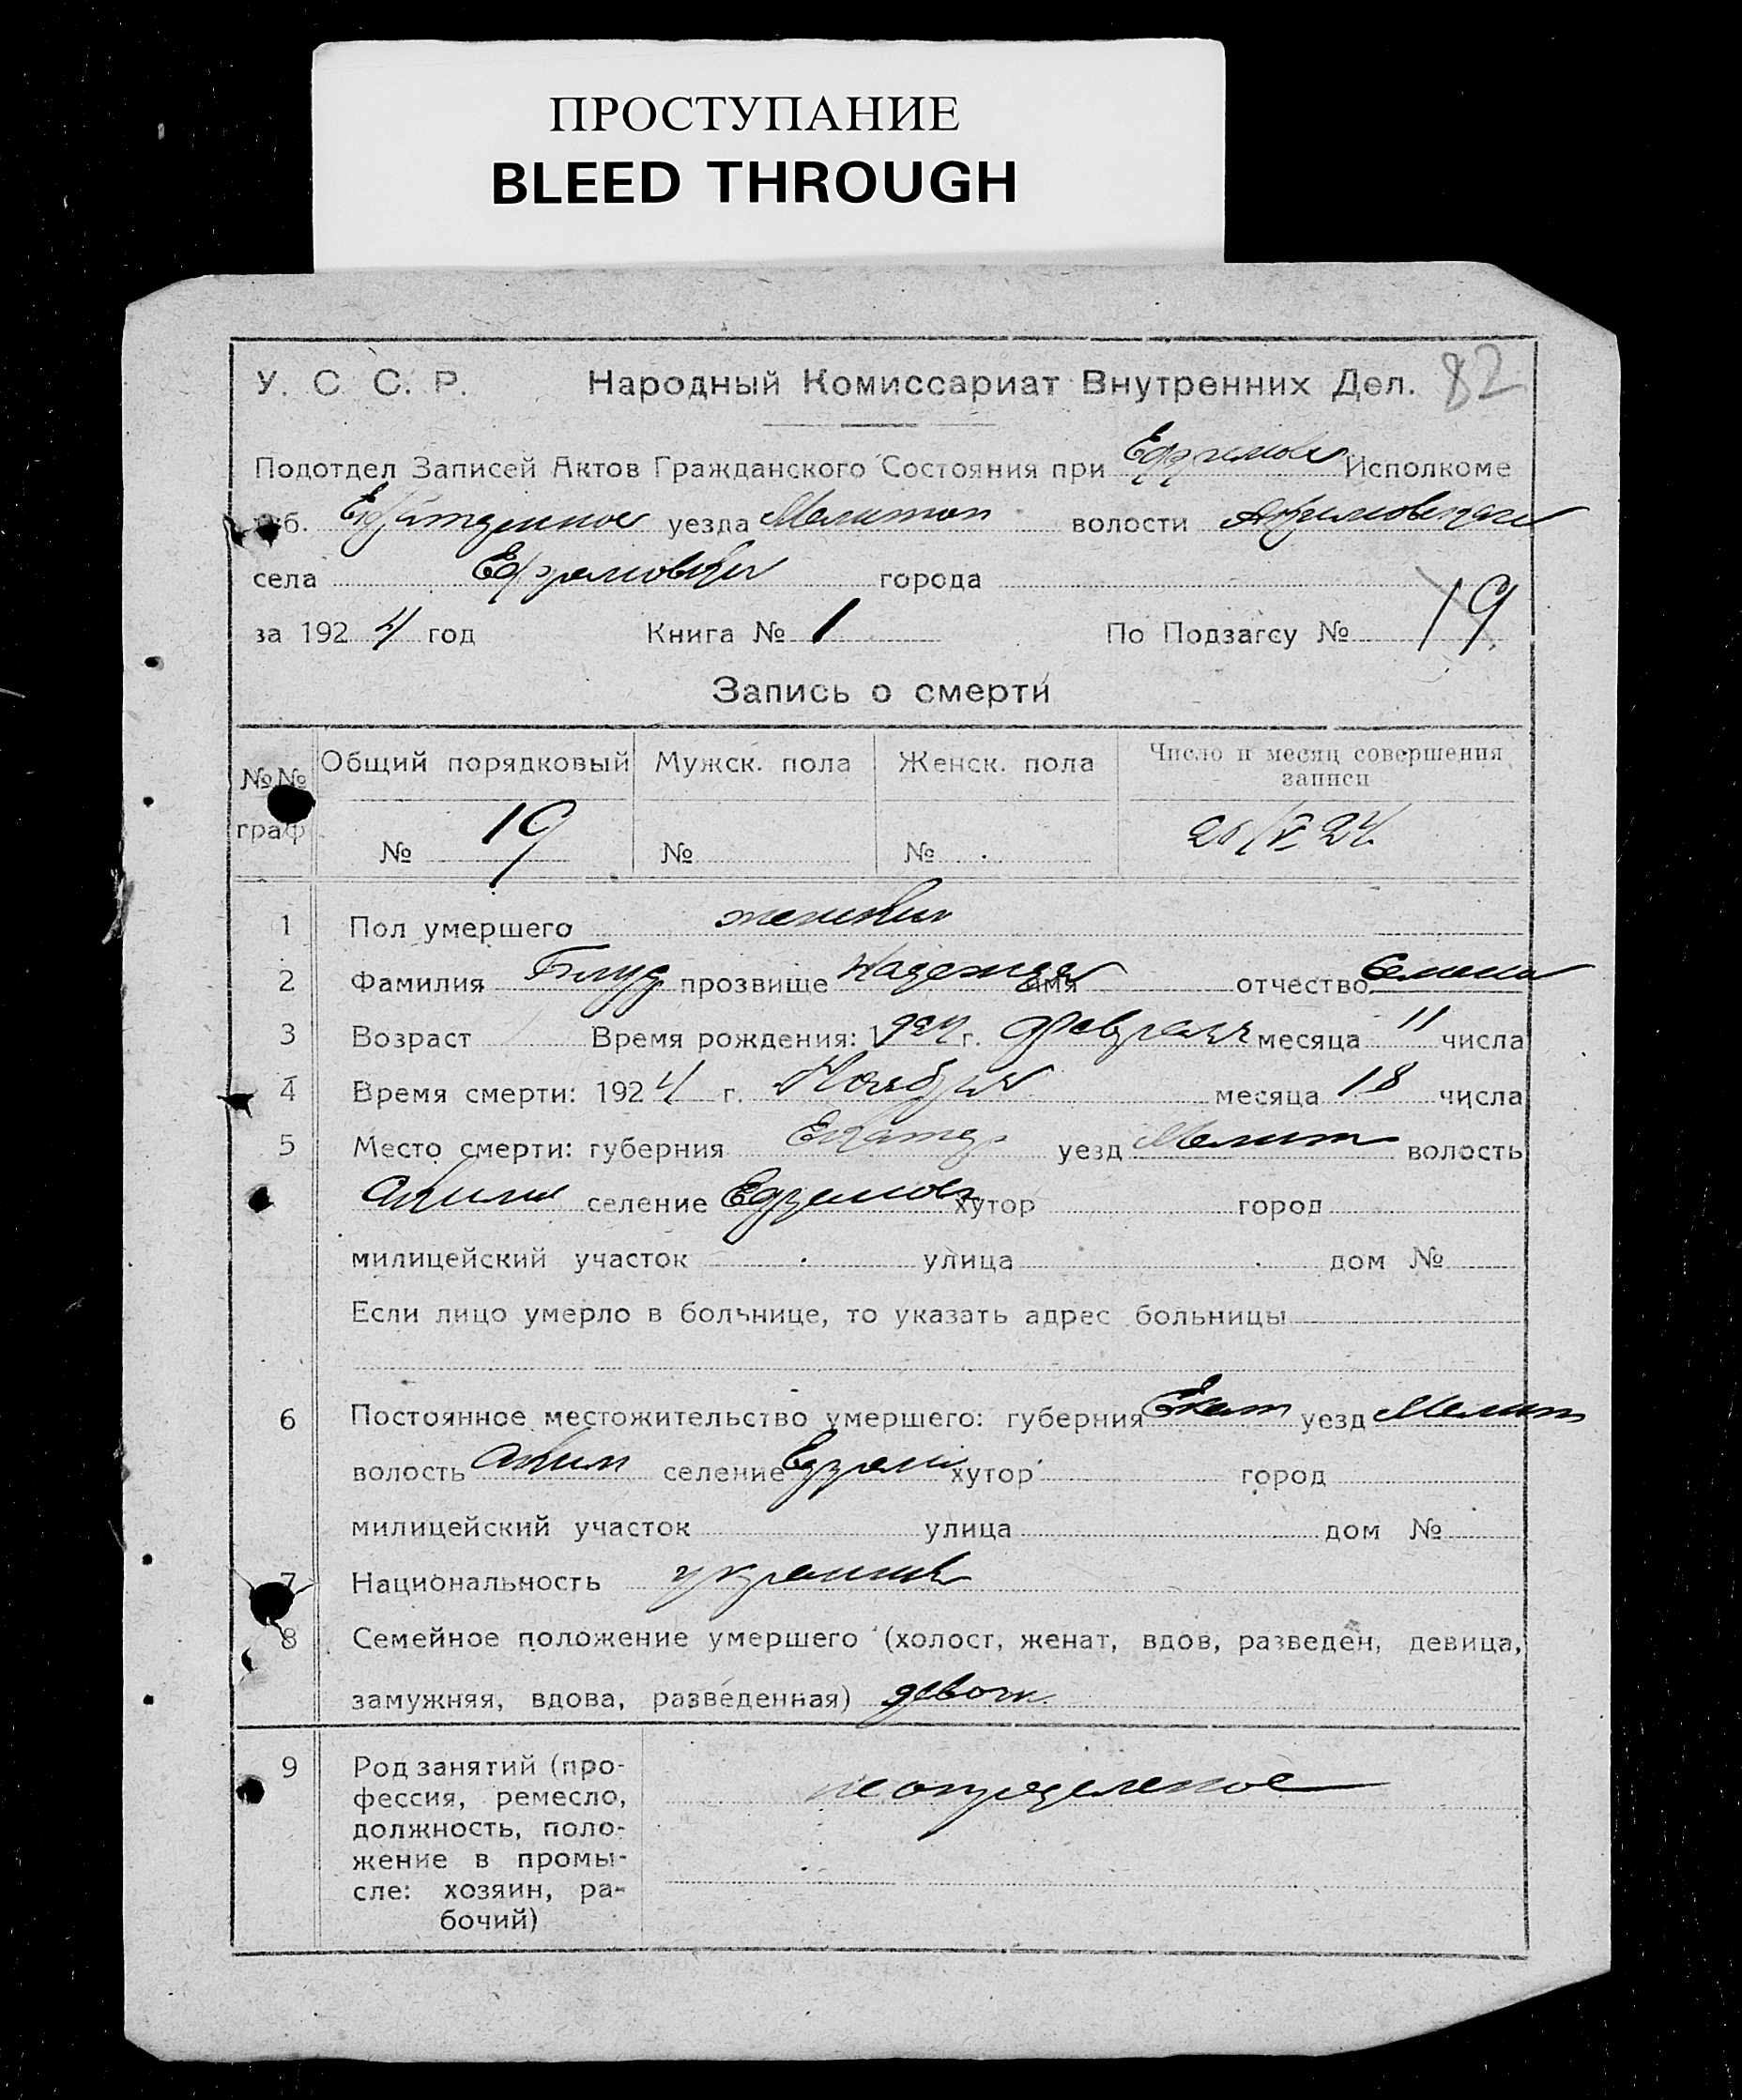 ПРОСТУПАНИЕ
BLEED THROUGH
У. С С. Р. Народный Комиссариат Внутренних Дел. 82
Подотдел Записей Актов Гражданского Состояния при Исполкоме
уезда Мелитоп волости Акимовской
села города
за 1924 год Книга № 1 По Подзагсу № 19
Запись о смерти
№№ граф. Общий порядковый Мужск. пола Женск. пола Число и месяц совершения записи
№ 19 № №
1 Пол умершего женский
2 Фамилия прозвище Надежда имя отчество
3 Возраст Время рождения: 1924 г. Февраля месяца 11 числа
4 Время смерти: 1924 г. Ноября месяца 18 числа
5 Место смерти: губерния Екатер уезд Мелит волость
Аким селение хутор город
милицейский участок улица дом №
Если лицо умерло в больнице, то указать адрес больницы
6 Постоянное местожительство умершего: губерния Екат уезд Мелит
волость Аким селение хутор город
милицейский участок улица дом №
7 Национальность
8 Семейное положение умершего (холост, женат, вдов, разведен, девица,
замужняя, вдова, разведенная)
9 Род занятий (про-
фессия, ремесло,
должность, поло-
жение в промы-
сле: хозяин, ра-
бочий)